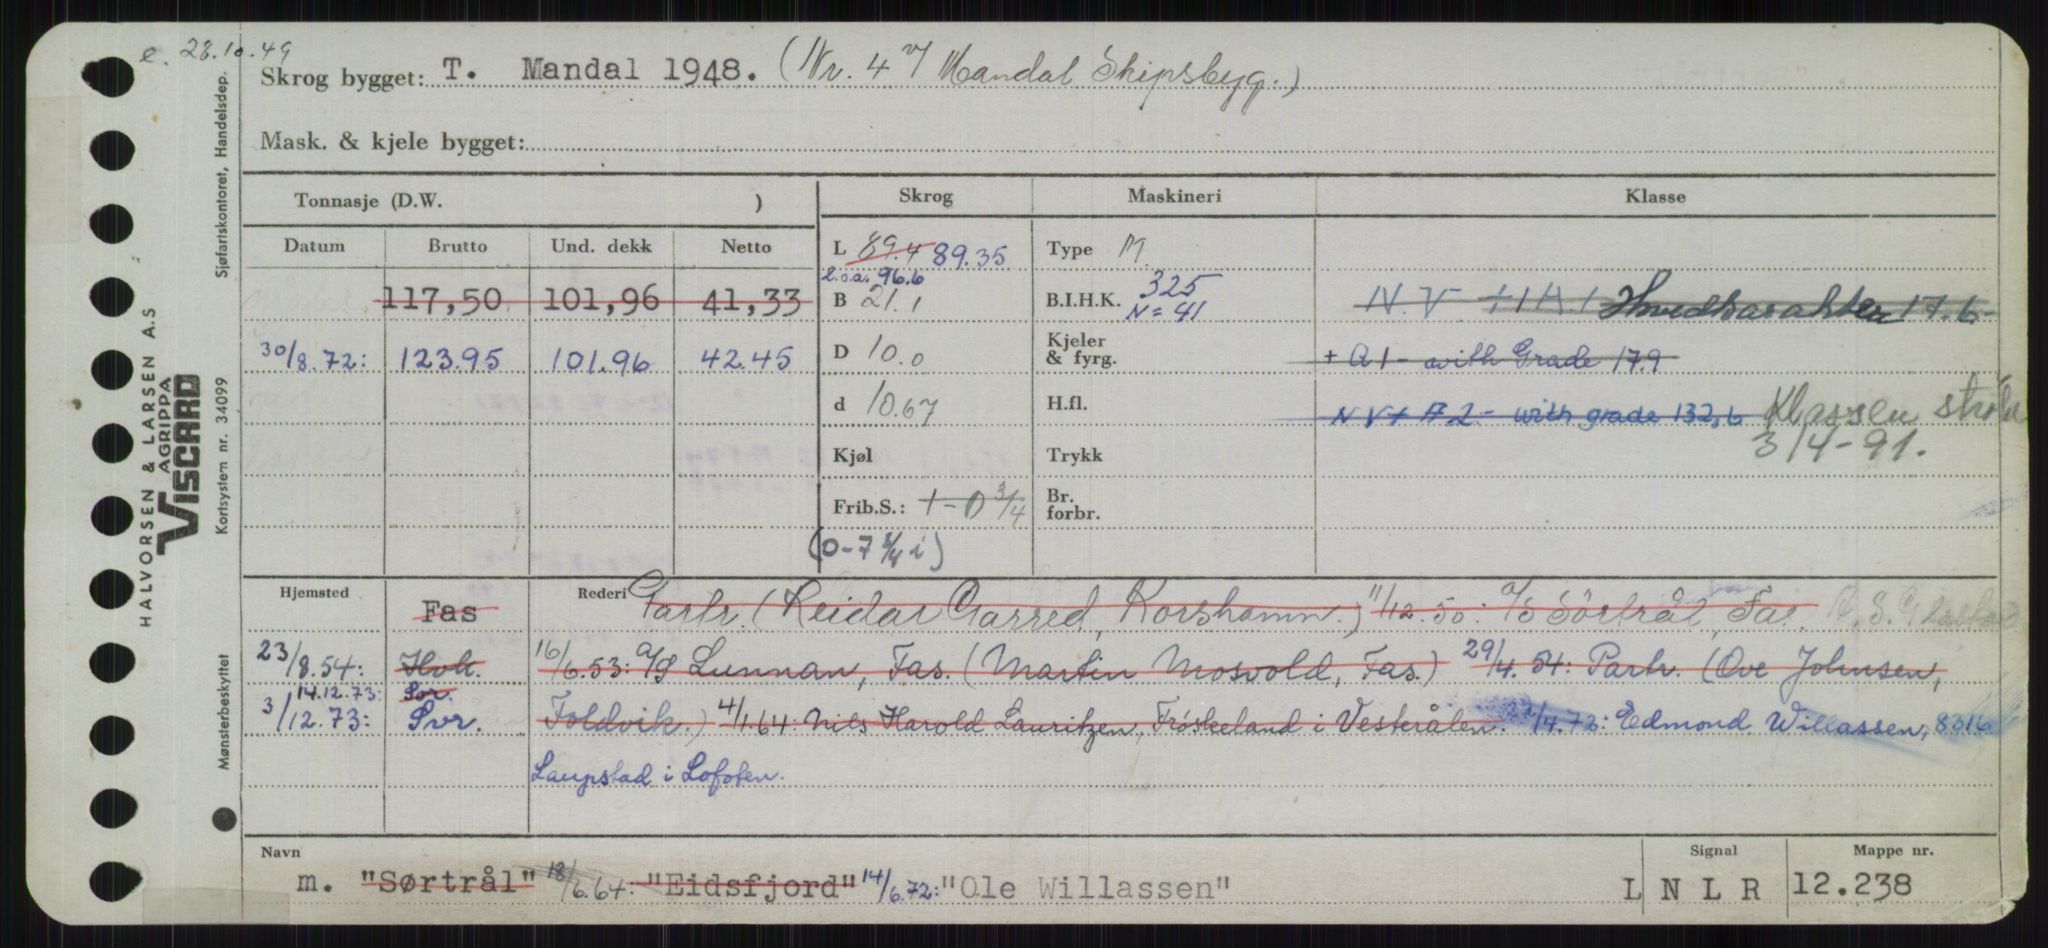 e. 28.10.49
Skrog bygget: T. Mandal 1948. (Nr. 4 v/ Mandal Skipsbyg.)
Mask. & kjele bygget:
Tonnasje (D.W. )
Skrog
Maskineri
Klasse
Datum Brutto Und. dekk Netto
L 89.4 89.35
Type M
l.o.a. 96.6
117,50 101,96 41,33
B 21.1
B.I.H.K. 325
N = 41
N.V. +1A.1 Hovedkarakter 17.6
30/8.72: 123.95 101.96 42.45
D 10.0
Kjeler & fyrg.
+ A 1 - with Grade 17.9
d 10.67
H.fl.
N V + A 2 - with grade 132,6 Klassen
3/4-91.
Kjøl
Trykk
Frib.S.: 1-0 3/4
Br. forbr.
(0-7 1/4 i)
Hjemsted Fas
Rederi Partr. (Reidar Garred, Korshamn.) 11/12.50: A/S Sørtrål, Fas.
23/8.54: Hvk.
16/6.53: A/S Lunnan, Fas. (Martin Mosvold, Fas.) 29/4.54: Partr. (Ove Johnsen,
14.12.73: Sor.
3/12.73: Svr.
Foldvik.) 4/1.64: Nils Harold Lauritzen, Frøskeland i Vesterålen. 27/4.72: Edmond Willassen, 8316
Laupstad i Lofoten.
Navn
Signal
Mappe nr.
m. "Sørtrål" 18/6.64: "Eidsfjord" 14/6.72: "Ole Willassen" L N L R 12.238
HALVORSEN & LARSEN A.S
AGRIPPA
VISCARD
Mønsterbeskyttet Kortsystem nr. 34099 Sjøfartskontoret, Handelsdep.